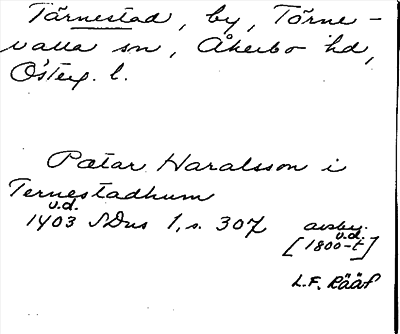 Tärnestad, by, Törne-
valla sn, Åkerbo hd,
Österg. l.
Pætar Haralsson i
Ternestadhum
u.d.
1403 SDns 1, s. 307 avskr.
u.d.
[1800-t]
L.F. Rääf